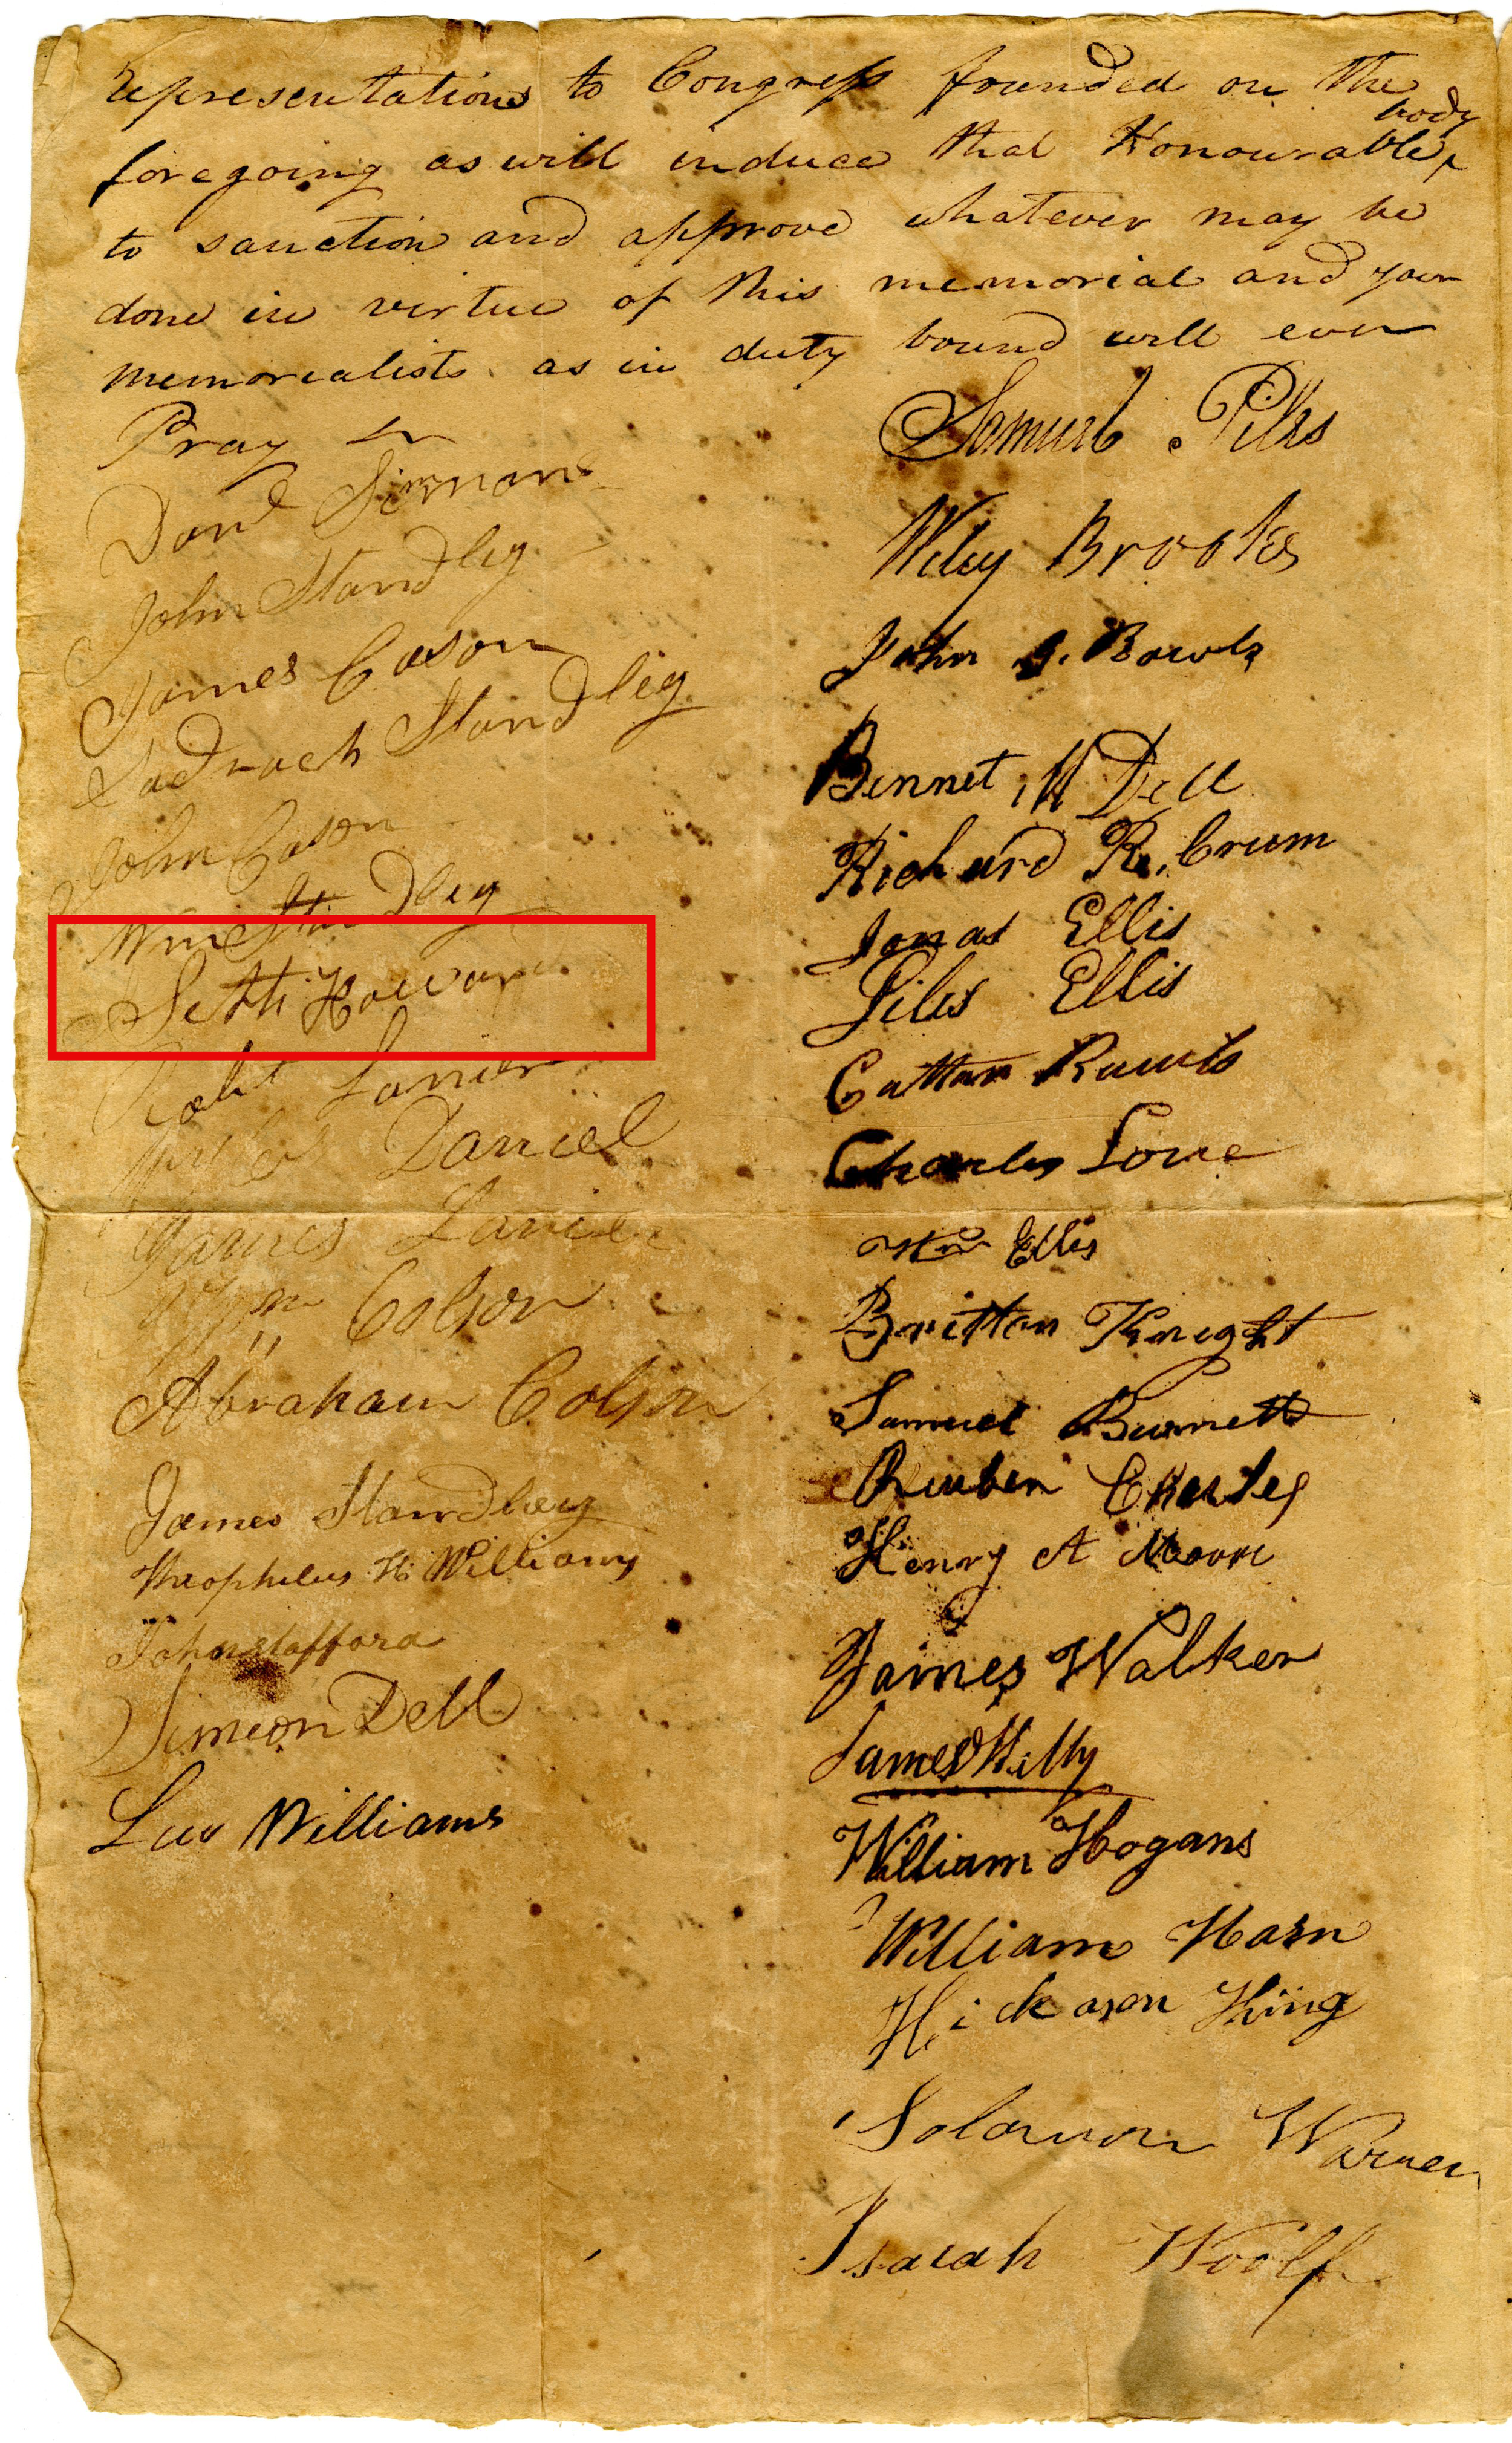 representations to Congress founded on the
foregoing as will induce that Honourable body
to sanction and approve whatever may be
done in virtue of this memorial and your
memorialists as in duty bound will ever
Pray
Samuel Pilks
Wiley Brooks
John J. Bowls
Bennet M Dell
Richard R. Crum
Jonas Ellis
Giles Ellis
Cotton Rawls
Charles Love
Wm Ellis
Britton Knight
Samuel Burnett
Reuben Charles
Henry A Moore
James Walker
James
William Hogans
William Harn
Hickason King
Solomon Warner
Isaiah Woolf
Danl Simmons
John Standley
James Cason
Sadrach Standley
John Cason
Wm Standley
Seth Howard
Robt Lanier
Daniel
James Lanier
Wm Colson
Abraham Colson
James Standley
Theophilus H Williams
John Stafford
Simeon Dell
Williams